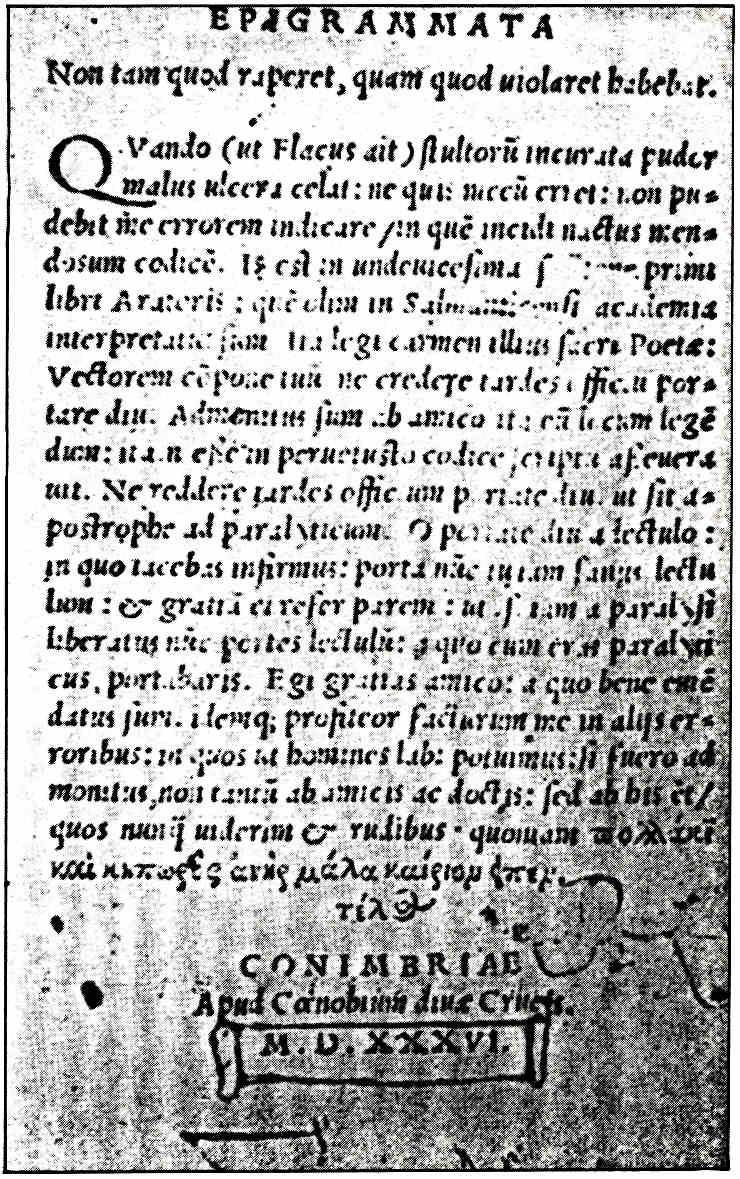 EPIGRAMMATA
Non tam quod raperet, quam quod uiolaret habebat.
QVando (ut Flacus ait) stultorũ incurata pudor
malus ulcera celat: ne quis mecũ erret: non pu-
debit me errorem indicare/in quẽ incidi nactus men-
dosum codicẽ. Is est in undeuicesima primi
libri Aratoris: quẽ olim in Salmanticensi academia
interpretatus sum. Ita legi carmen illius sacri Poetæ:
Vectorem cõpone tuũ ne credere tardes officiũ por-
tare diu. Admonitus sum ab amico ita eũ locum legẽ
dum: ita in peruetusto codice scriptũ asseuera
uit. Ne reddere tardes officium portate diu. ut sit a-
postrophe ad paralyticum. O portate diu a lectulo:
in quo iacebas infirmus: porta nũc tu iam sanus lectu
lum: & gratiã ei refer parem: ut iam a paralysi
liberatus nũc portes lectulũ: a quo cum eras paralyti
cus, portabaris. Egi gratias amico: a quo bene emẽ
datus sum. idemq; profiteor facturum me in alijs er-
roribus: in quos ut homines labi potuimus: si fuero ad
monitus, non tantũ ab amicis ac doctis: sed ab his et/
quos nunq̃ uiderim & rudibus. quoniam πολλάκι
καὶ κηπωρὸς ἀνὴρ μάλα καίριον
τέλος
CONIMBRIAE
Apud Cœnobium diuæ Crucis.
M. D. XXXVI.